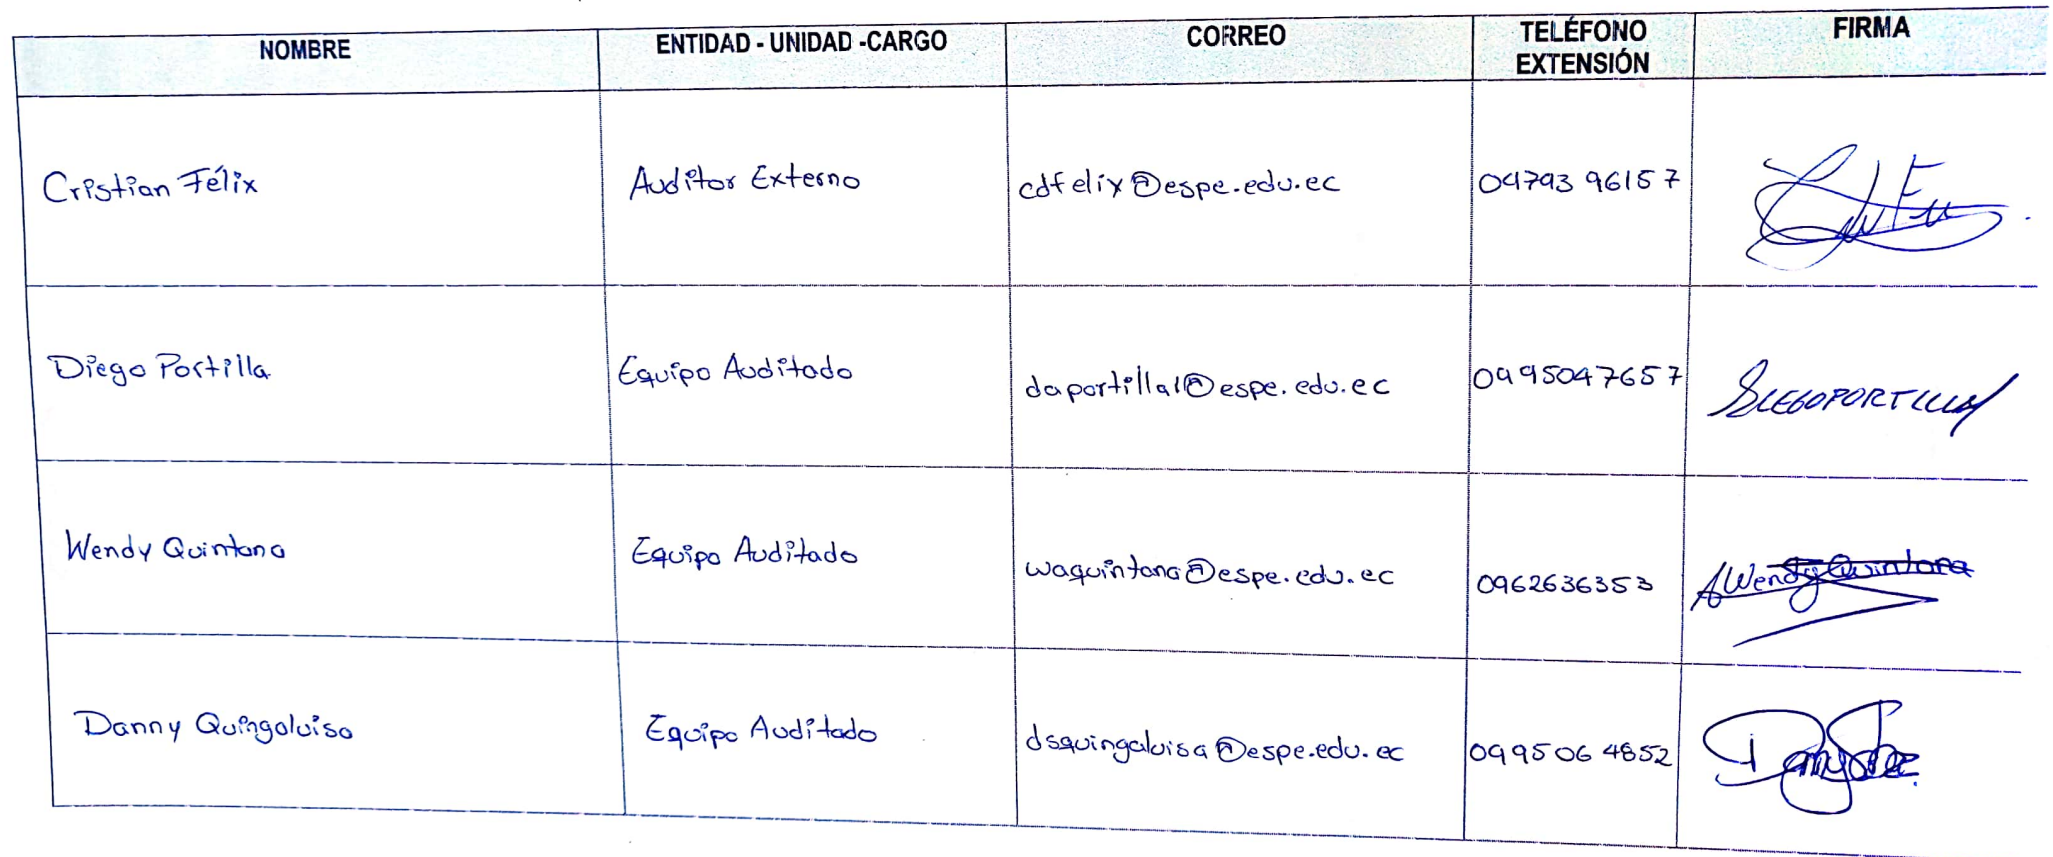 NOMBRE ENTIDAD - UNIDAD -CARGO CORREO TELÉFONO EXTENSIÓN FIRMA
Cristian Félix Auditor Externo cdfelix@espe.edu.ec 0979396157
Diego Portilla Equipo Auditado daportilla1@espe.edu.ec 0995047657 DIEGOPORTILLA
Wendy Quintana Equipo Auditado waquintana@espe.edu.ec 0962636353 Wendy Quintana
Danny Quingaluisa Equipo Auditado dsquingaluisa@espe.edu.ec 0995064852